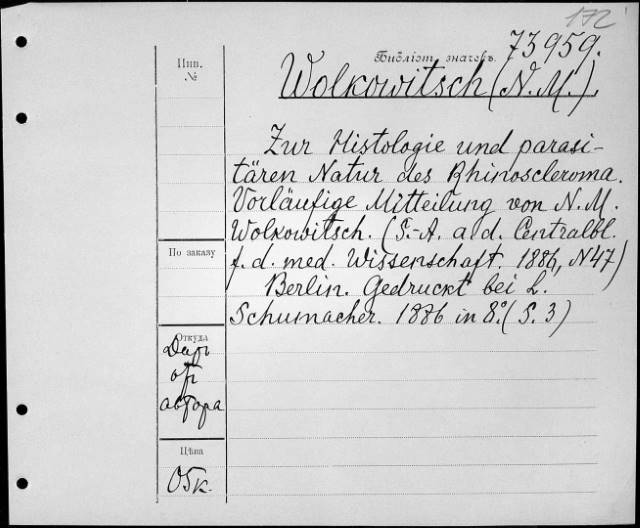 172
73959.
Библіот. значекъ.
Wolkowitsch (N. M.).
Инв.
№
Zur Histologie und parasi-
tären Natur des Rhinoscleroma.
Vorläufige Mitteilung von N. M.
Wolkowitsch. (S.-A. a. d. Centralbl.
f. d. med. Wissenschaft. 1886, N 47)
Berlin. Gedruckt bei L.
Schumacher. 1886 in 8.° (S. 3)
По заказу
Откуда
Дар
от
автора
Цѣна
05 к.